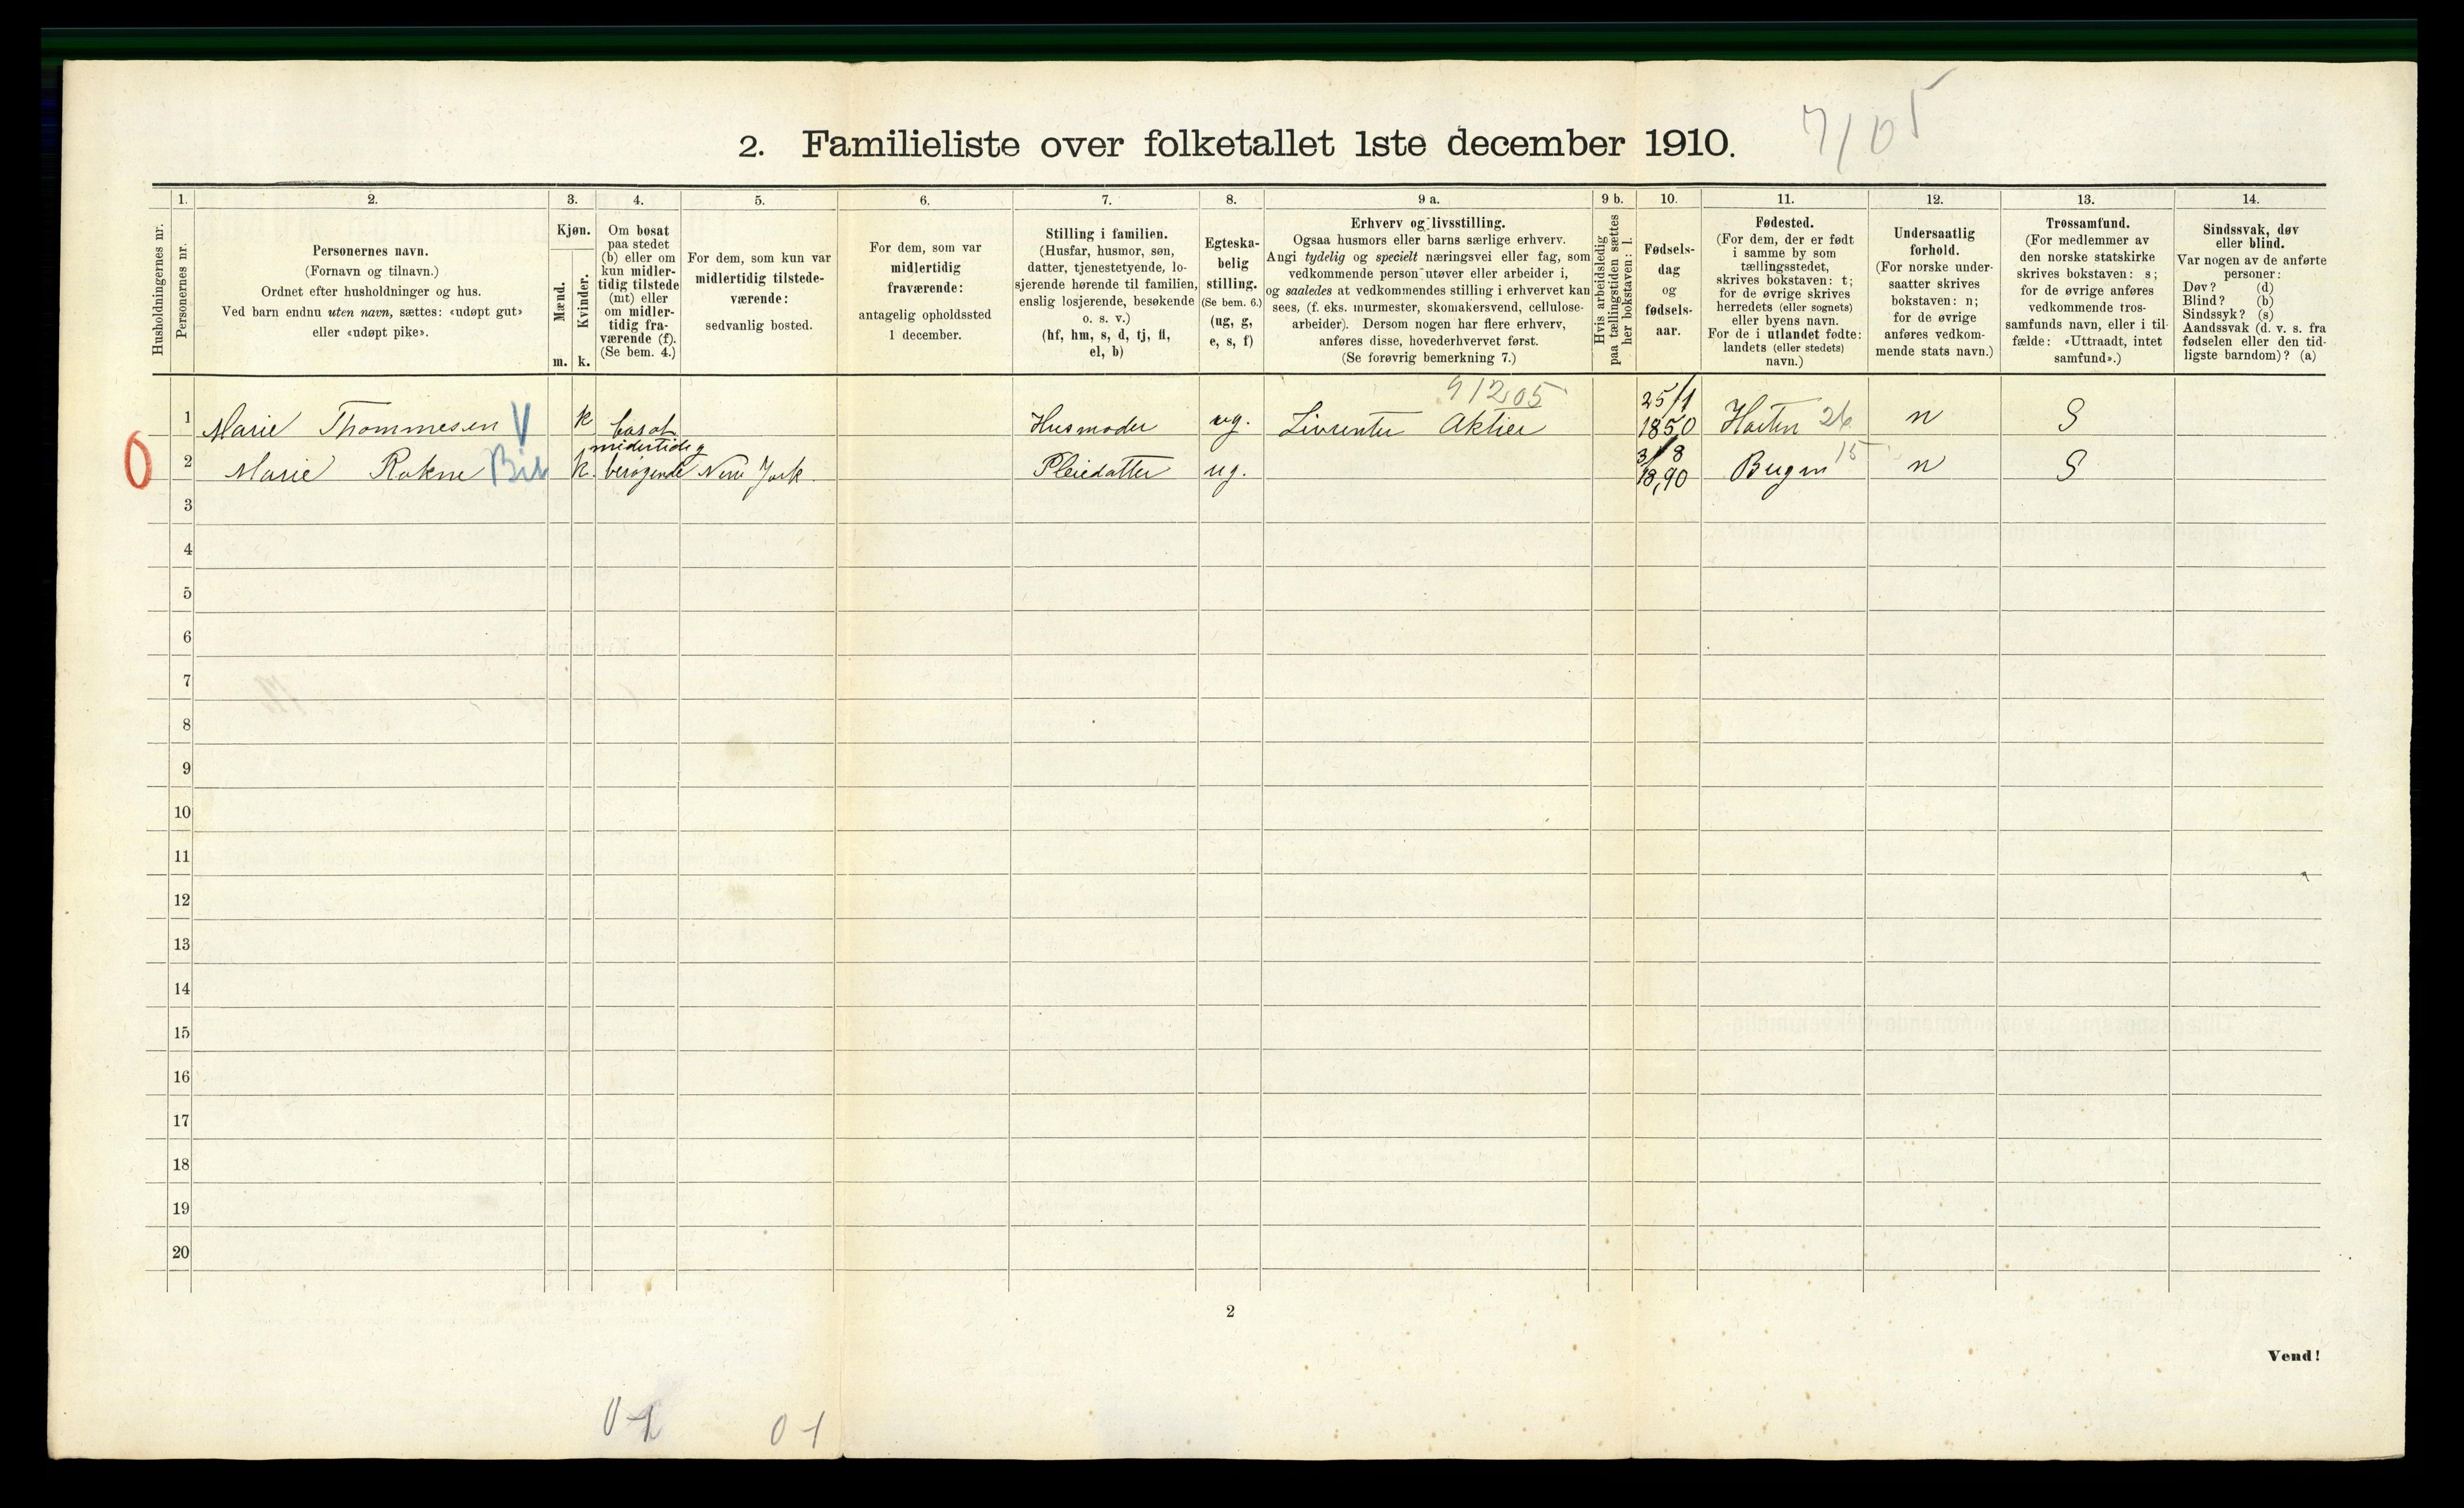 2. Familieliste over folketallet 1ste december 1910.
7/05
1. 2. 3. 4. 5. 6. 7. 8. 9 a. 9 b. 10. 11. 12. 13. 14.
Husholdningernes nr.
Personernes nr.
Personernes navn.
(Fornavn og tilnavn.)
Ordnet efter husholdninger og hus.
Ved barn endnu uten navn, sættes: «udøpt gut»
eller «udøpt pike».
Kjøn.
Mænd.
m.
Kvinder.
k.
Om bosat
paa stedet
(b) eller om
kun midler-
tidig tilstede
(mt) eller
om midler-
tidig fra-
værende (f).
(Se bem. 4.)
For dem, som kun var
midlertidig tilstede-
værende:
sedvanlig bosted.
For dem, som var
midlertidig
fraværende:
antagelig opholdssted
1 december.
Stilling i familien.
(Husfar, husmor, søn,
datter, tjenestetyende, lo-
sjerende hørende til familien,
enslig losjerende, besøkende
o. s. v.)
(hf, hm, s, d, tj, fl,
el, b)
Egteska-
belig
stilling.
(Se bem. 6.)
(ug, g,
e, s, f)
Erhverv og livsstilling.
Ogsaa husmors eller barns særlige erhverv.
Angi tydelig og specielt næringsvei eller fag, som
vedkommende person utøver eller arbeider i,
og saaledes at vedkommendes stilling i erhvervet kan
sees, (f. eks. murmester, skomakersvend, cellulose-
arbeider). Dersom nogen har flere erhverv,
anføres disse, hovederhvervet først.
(Se forøvrig bemerkning 7.)
Hvis arbeidsledig
paa tællingstiden sættes
her bokstaven: l.
Fødsels-
dag
og
fødsels-
aar.
Fødested.
(For dem, der er født
i samme by som
tællingsstedet,
skrives bokstaven: t;
for de øvrige skrives
herredets (eller sognets)
eller byens navn.
For de i utlandet fødte:
landets (eller stedets)
navn.)
Undersaatlig
forhold.
(For norske under-
saatter skrives
bokstaven: n;
for de øvrige
anføres vedkom-
mende stats navn.)
Trossamfund.
(For medlemmer av
den norske statskirke
skrives bokstaven: s;
for de øvrige anføres
vedkommende tros-
samfunds navn, eller i til-
fælde: «Uttraadt, intet
samfund».)
Sindssvak, døv
eller blind.
Var nogen av de anførte
personer:
Døv? (d)
Blind? (b)
Sindssyk? (s)
Aandssvak (d. v. s. fra
fødselen eller den tid-
ligste barndom)? (a)
91205
1 Marie Thommesen V k bosat Husmoder ug. Livrenter Aktier 25/1 1850 Horten 26 n S
0 2 Marie Rokne k. midertidig besøgende New York. Pleiedatter ug. 3/8 1890 Bergen 15 n S
3
4
5
6
7
8
9
10
11
12
13
14
15
16
17
18
19
20
2
Vend!
0-1 0-1